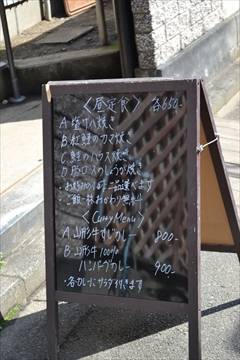 〈昼定食〉 各650-
A 塩サバ焼き
B 紅鮭のカマ焼き
C 鮭のハラス焼き
D 豚ロースしょうが焼き
・ご飯一杯おかわり無料
〈Curry Menu〉
A 山形牛すじカレー 800-
B 山形牛100%
ハンバーグカレー 900-
・各カレーにサラダ付きます